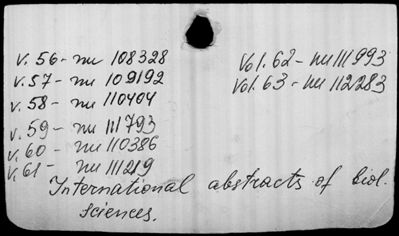 v. 56 - nu 108328
v. 57 - nu 109192
v. 58 - nu 110404
v. 59 - nu 111793
v. 60 - nu 110386
v. 61 - nu 111219
Vol. 62 - nu 111993
Vol. 63 - nu 112283
International abstracts of biol.
sciences.